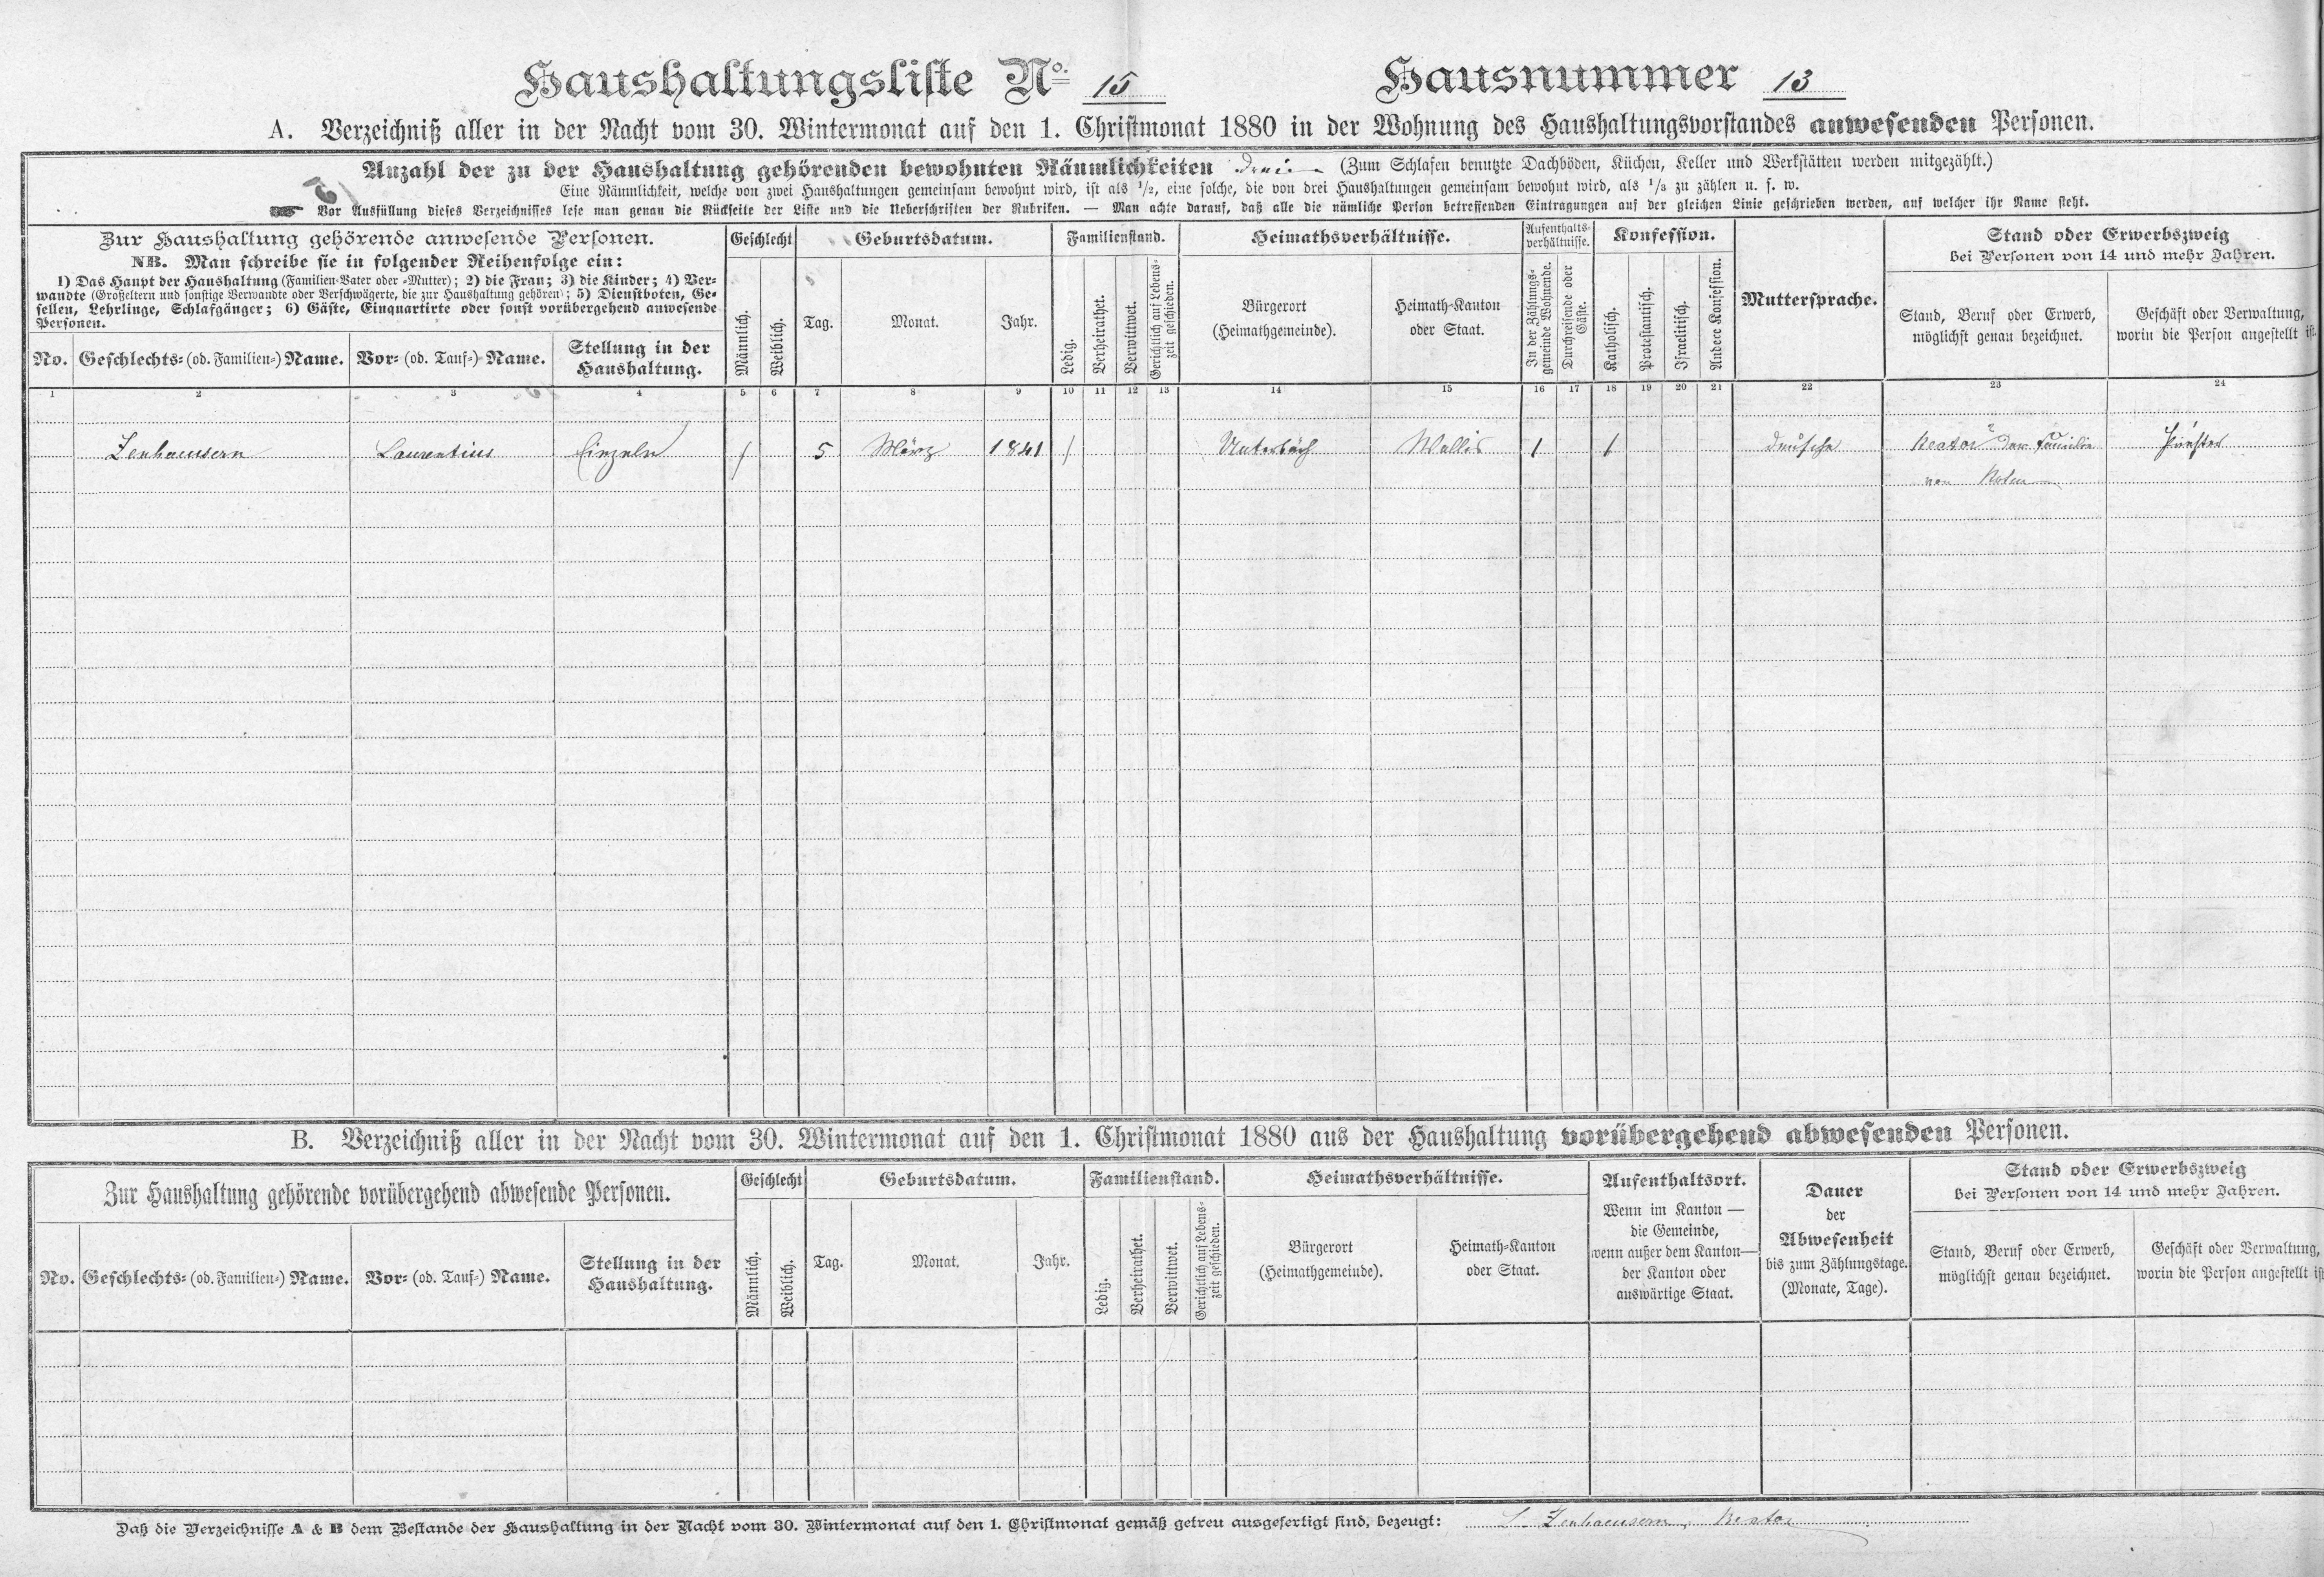 Haushaltungsliste No. 15 Hausnummer 13
A. Verzeichniß aller in der Nacht vom 30. Wintermonat auf den 1. Christmonat 1880 in der Wohnung des Haushaltungsvorstandes anwesenden Personen.
Anzahl der zu der Haushaltung gehörenden bewohnten Räumlichkeiten drei (Zum Schlafen benutzte Dachböden, Küchen, Keller und Werkstätten werden mitgezählt.)
Eine Räumlichkeit, welche von zwei Haushaltungen gemeinsam bewohnt wird, ist als 1/2, eine solche, die von drei Haushaltungen gemeinsam bewohnt wird, als 1/3 zu zählen u. s. w.
Vor Ausfüllung dieses Verzeichnisses lese man genau die Rückseite der Liste und die Ueberschriften der Rubriken. — Man achte darauf, daß alle die nämliche Person betreffenden Eintragungen auf der gleichen Linie geschrieben werden, auf welcher ihr Name steht.
Zur Haushaltung gehörende anwesende Personen.
NB. Man schreibe sie in folgender Reihenfolge ein:
1) Das Haupt der Haushaltung (Familien-Vater oder -Mutter); 2) die Frau; 3) die Kinder; 4) Ver-
wandte (Großeltern und sonstige Verwandte oder Verschwägerte, die zur Haushaltung gehören); 5) Dienstboten, Ge-
sellen, Lehrlinge, Schlafgänger; 6) Gäste, Einquartirte oder sonst vorübergehend anwesende
Personen.
No.
Geschlechts- (od. Familien-) Name.
Vor- (od. Tauf-) Name.
Stellung in der
Haushaltung.
Geschlecht
Männlich.
Weiblich.
Geburtsdatum.
Tag.
Monat.
Jahr.
Familienstand.
Ledig.
Verheirathet.
Verwittwet.
Gerichtlich auf Lebens-
zeit geschieden.
Heimathsverhältnisse.
Bürgerort
(Heimathgemeinde).
Heimath-Kanton
oder Staat.
Aufenthalts-
verhältnisse.
In der Zählungs-
gemeinde Wohnende.
Durchreisende oder
Gäste.
Konfession.
Katholisch.
Protestantisch.
Israelitisch.
Andere Konfession.
Muttersprache.
Stand oder Erwerbszweig
bei Personen von 14 und mehr Jahren.
Stand, Beruf oder Erwerb,
möglichst genau bezeichnet.
Geschäft oder Verwaltung,
worin die Person angestellt ist.
1 2 3 4 5 6 7 8 9 10 11 12 13 14 15 16 17 18 19 20 21 22 23 24
Zenhaeusern Laurentius Einzeln 1 5 März 1841 1 Unterbäch Wallis 1 1 deutsche Rector der Familie Priester
von Roten
B. Verzeichniß aller in der Nacht vom 30. Wintermonat auf den 1. Christmonat 1880 aus der Haushaltung vorübergehend abwesenden Personen.
Zur Haushaltung gehörende vorübergehend abwesende Personen.
No.
Geschlechts- (od. Familien-) Name.
Vor- (od. Tauf-) Name.
Stellung in der
Haushaltung.
Geschlecht
Männlich.
Weiblich.
Geburtsdatum.
Tag.
Monat.
Jahr.
Familienstand.
Ledig.
Verheirathet.
Verwittwet.
Gerichtlich auf Lebens-
zeit geschieden.
Heimathsverhältnisse.
Bürgerort
(Heimathgemeinde).
Heimath-Kanton
oder Staat.
Aufenthaltsort.
Wenn im Kanton —
die Gemeinde,
wenn außer dem Kanton—
der Kanton oder
auswärtige Staat.
Dauer
der
Abwesenheit
bis zum Zählungstage.
(Monate, Tage).
Stand oder Erwerbszweig
bei Personen von 14 und mehr Jahren.
Stand, Beruf oder Erwerb,
möglichst genau bezeichnet.
Geschäft oder Verwaltung,
worin die Person angestellt ist
Daß die Verzeichnisse A & B dem Bestande der Haushaltung in der Nacht vom 30. Wintermonat auf den 1. Christmonat gemäß getreu ausgefertigt sind, bezeugt: L. Zenhaeusern, Rector